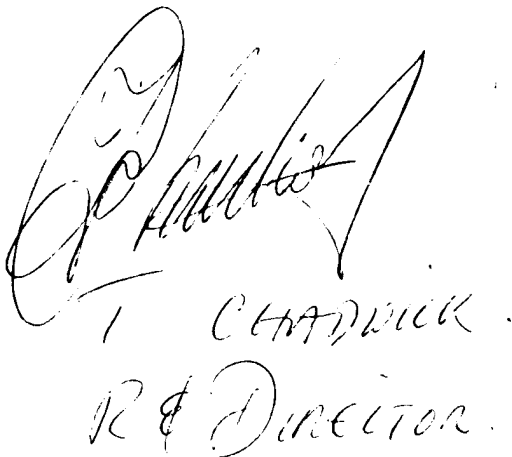 I CHADWICK.
R & D DIRECTOR.